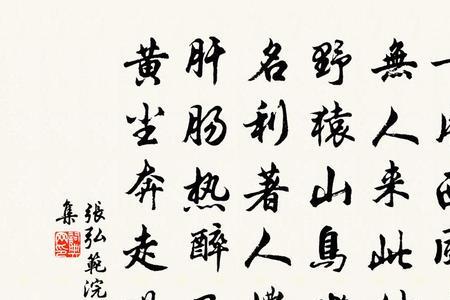 無人来此
野猿山鳥
名利著人
肝肠热醉
黄尘奔走
張弘範浣
集